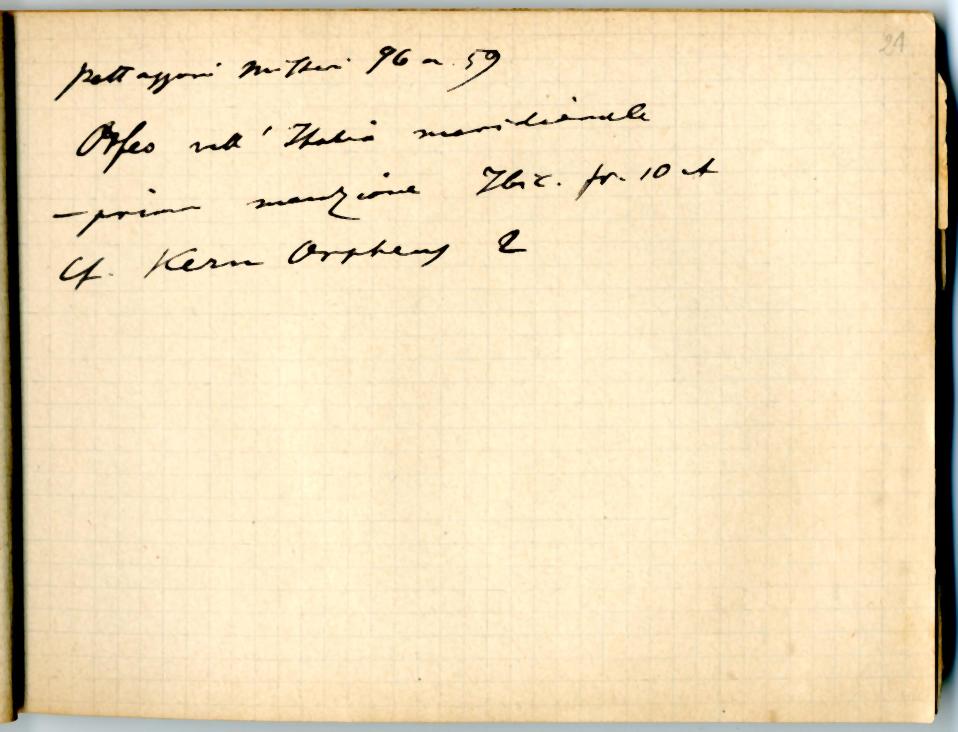 21
Pettazzoni Misteri 96 n. 59
Orfeo nell'Italia meridionale
– prima menzione Ibic. fr. 10 A
Cf. Kern Orpheus 2